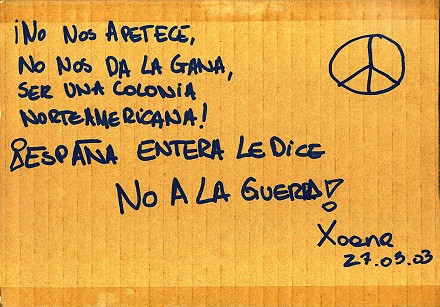 ¡NO NOS APETECE,
NO NOS DA LA GANA,
SER UNA COLONIA
NORTEAMERICANA!
¡ESPAÑA ENTERA LE DICE
NO A LA GUERRA!
Xoana
27.03.03